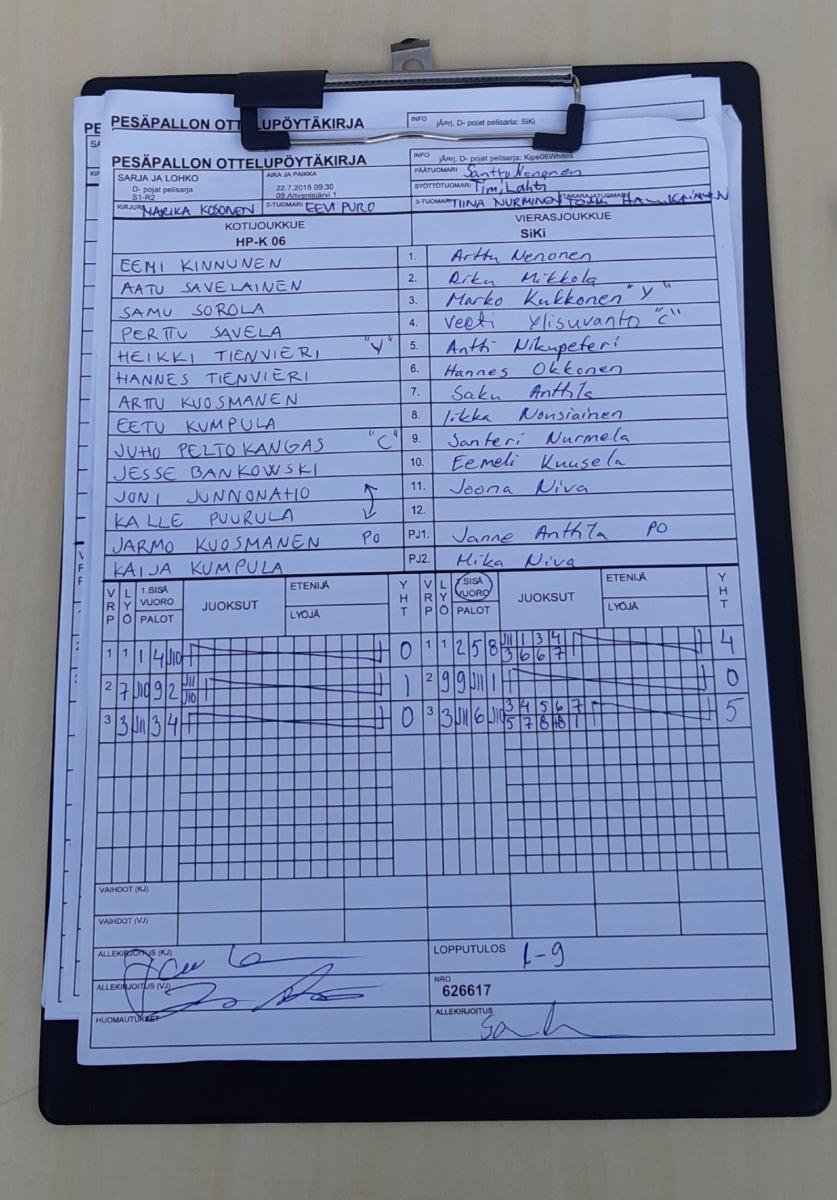 PESÄPALLON OTTELUPÖYTÄKIRJA
INFO jÄrrj. D- pojat pelisarja: SiKi
PESÄPALLON OTTELUPÖYTÄKIRJA
INFO jÄrrj. D- pojat pelisarja: Kipe06Whites
SARJA JA LOHKO
D- pojat pelisarja
S1-R2
AIKA JA PAIKKA
22.7.2018 09:30
09 Ahvenisjärvi 1
PÄÄTUOMARI Santtu Nenonen
SYÖTTÖTUOMARI Timi Lahti
KIRJURI MARIKA KOSONEN
2-TUOMARI EEVI PURO
3-TUOMARI TIINA NURMINEN
TAKARAJATUOMARI
KOTIJOUKKUE
HP-K 06
VIERASJOUKKUE
SiKi
EEMI KINNUNEN 1. Arttu Nenonen
AATU SAVELAINEN 2. Riku Mikkola
SAMU SOROLA 3. Marko Kukkonen "Y"
PERTTU SAVELA 4. Veeti Ylisuvanto "C"
HEIKKI TIENVIERI "V" 5. Antti Nikupeteri
HANNES TIENVIERI 6. Hannes Okkonen
ARTTU KUOSMANEN 7. Saku Anttila
EETU KUMPULA 8. Iikka Nousiainen
JUHO PELTOKANGAS "C" 9. Santeri Nurmela
JESSE BANKOWSKI 10. Eemeli Kuusela
JONI JUNNONAHO 11. Joona Niva
KALLE PUURULA 12.
JARMO KUOSMANEN PO PJ1. Janne Anttila PO
KAIJA KUMPULA PJ2. Mika Niva
VRP LYÖ 1.SISÄ VUORO PALOT JUOKSUT ETENIJÄ LYÖJÄ YHT VRP LYÖ 1.SISÄ VUORO PALOT JUOKSUT ETENIJÄ LYÖJÄ YHT
1 1 1 4 J10 0 1 1 2 5 8 J11 1 3 4 4
3 6 6 7
2 7 J10 9 2 J11 1 2 9 9 J11 1 0
J10
3 3 J11 3 4 0 3 3 J11 6 J10 3 4 5 6 7 5
5 7 8 +8 1
VAIHDOT (KJ)
VAIHDOT (VJ)
ALLEKIRJOITUS (KJ)
LOPPUTULOS 1-9
ALLEKIRJOITUS (VJ)
NRO
626617
HUOMAUTUKSET
ALLEKIRJOITUS